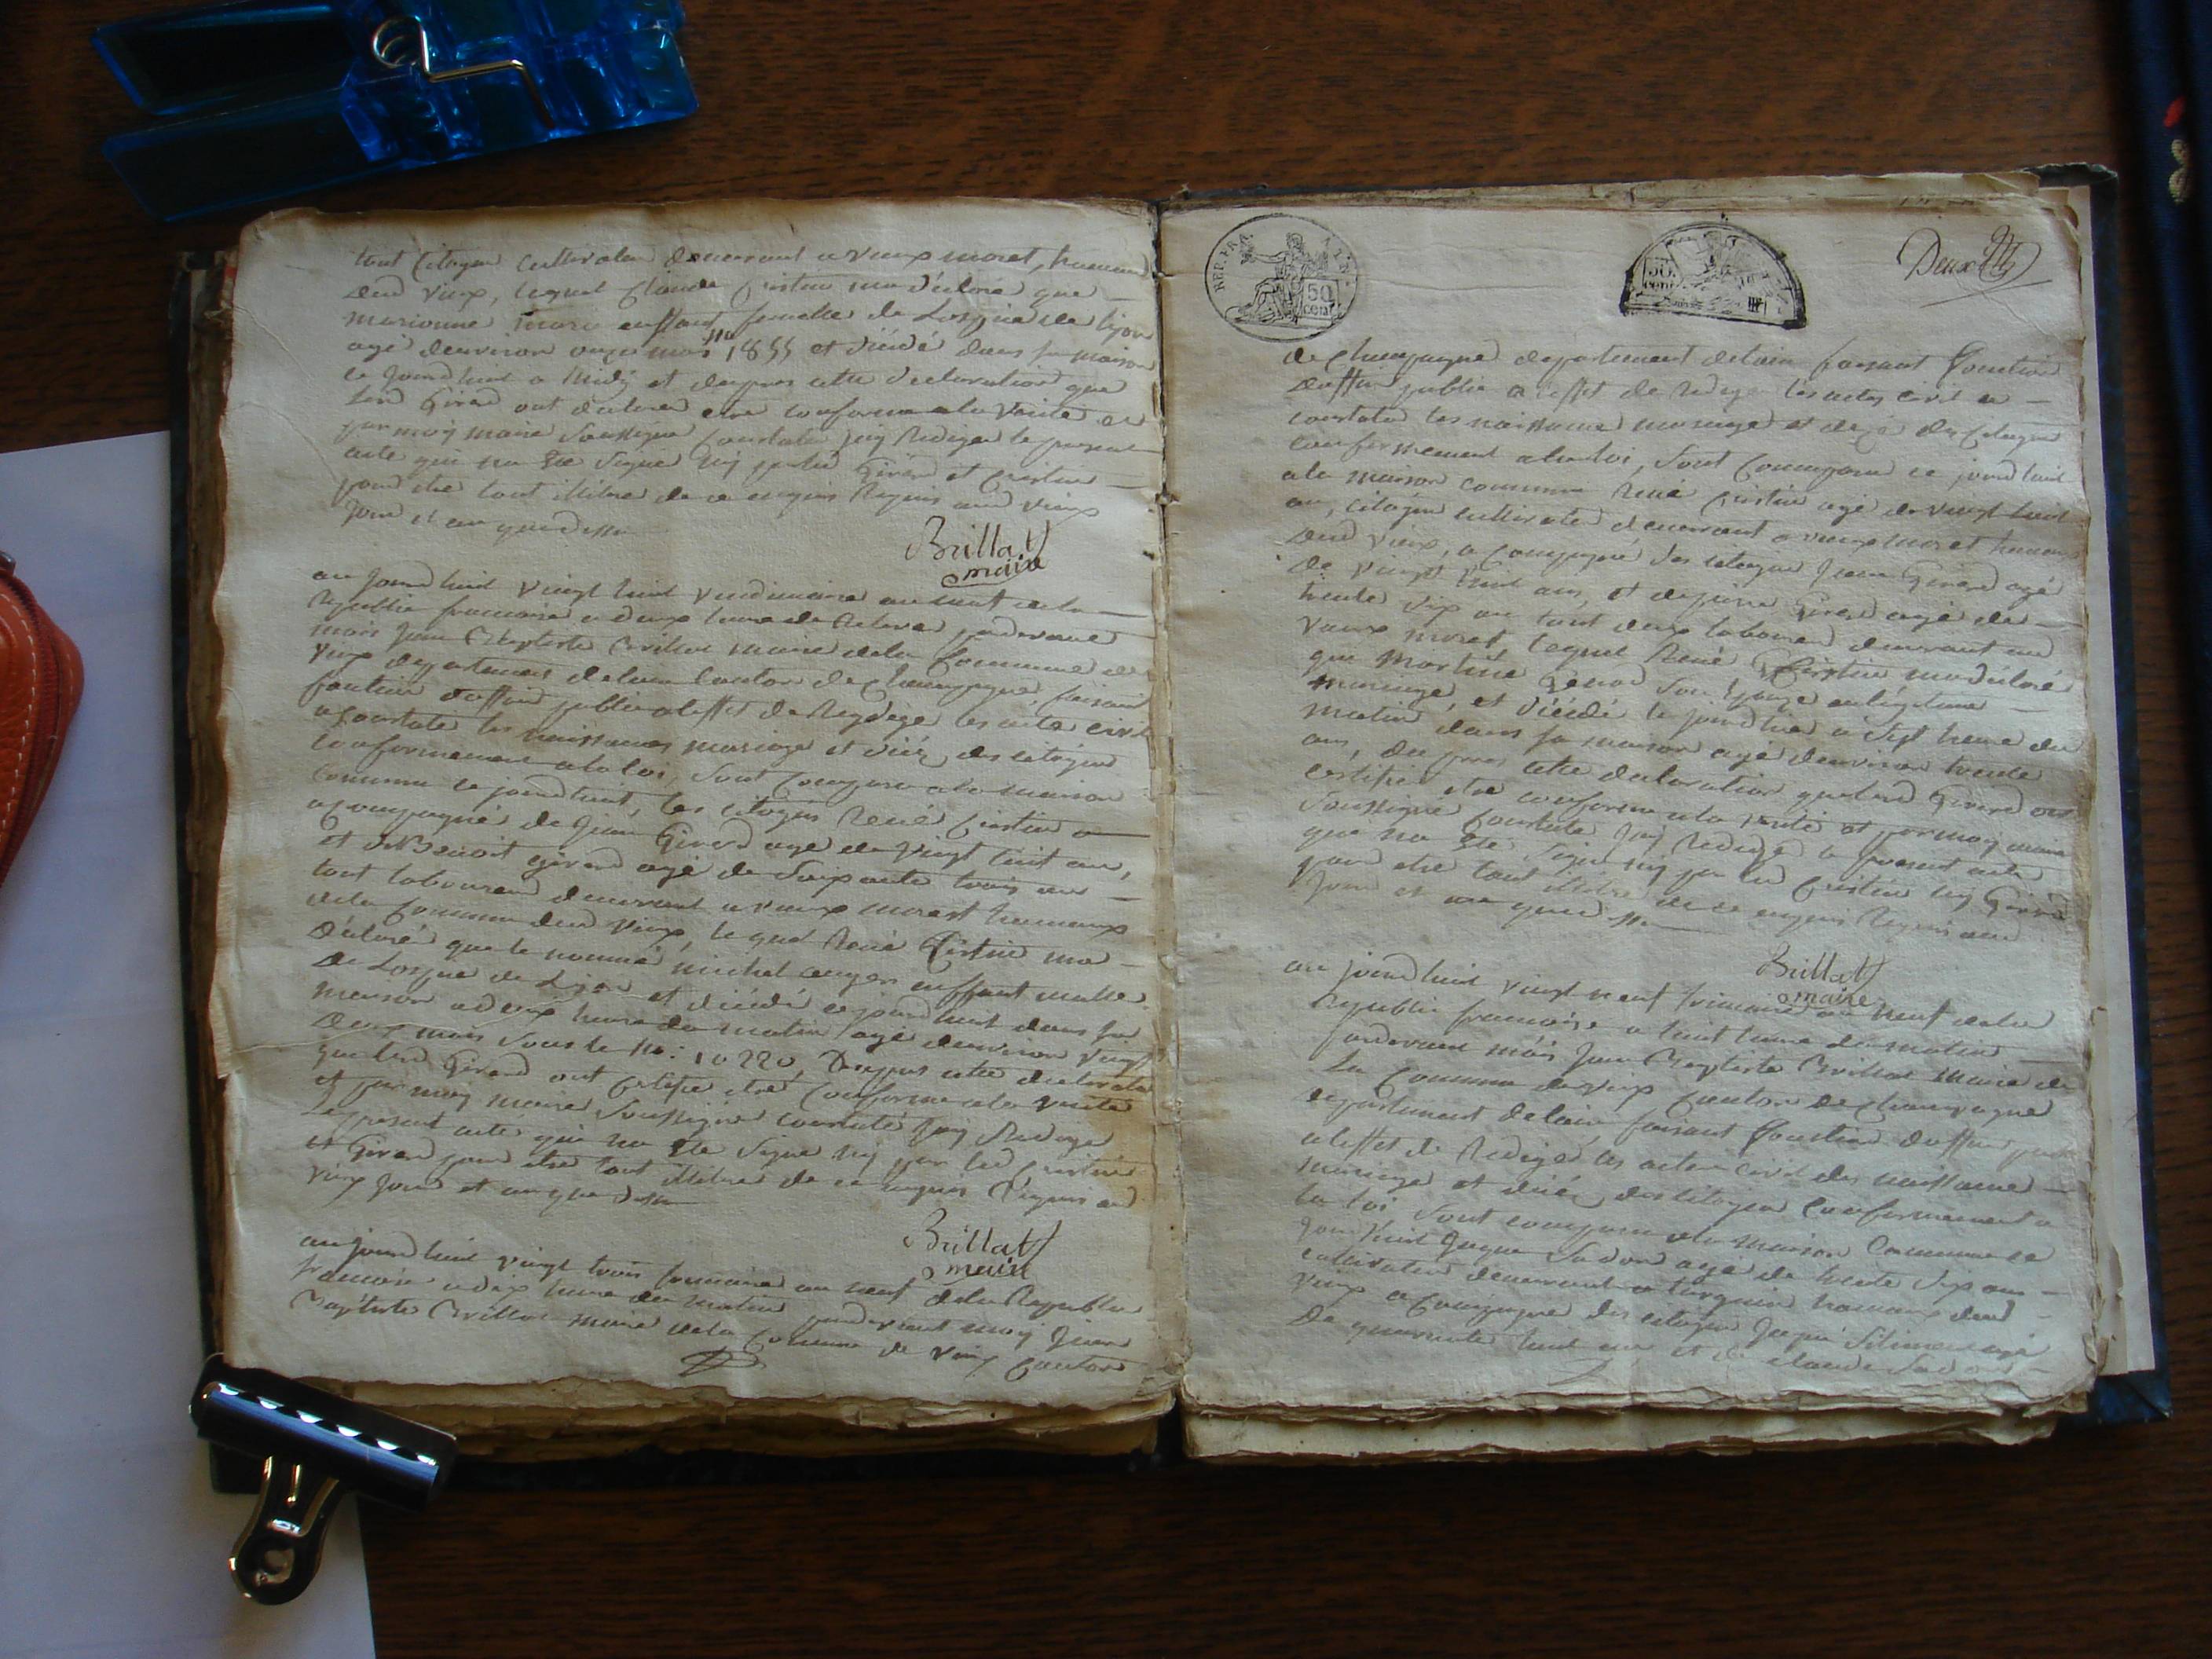 tout Citoyen cultivateur demeurant a vieux moret, hameau
dud vieux, lequel Claude Cristin ma déclaré que
marianne enffant femelle de Losspice de lijon
agé denviron onze mois no 1855 et décédé dans sa maison
ce jourdhui a Midy et dappres cette declaration que
led Girard ont déclaré etre conforme a la Vérité et
par moy maire Soussigné Constaté jay Rediger le present
acte qui na Ete Signé ny par led Girard et Cristin
pour etre tout illitré de ce enquis Requis aud vieux
jour et an que dessu
Brillat
maire
au jourdhuit vingt huit vendimiaire an neuf de la
Republic francaise a deux heure de Relevé pardevant
mois Jean Baptiste Brillat maire de la Commune de
vieux departement delain Canton de Champagne, faisant
fontion dofficier public a leffet de Reydége les acte civil
a constate les naissances mariage et décé des citoyen
Conformement a la loi, Sont Comparu a la maison
Commune ce jourdhuit, les citoyen René Cristin a
acompagné de Jean Girard agé de vingt huit an,
et de Benoit girard agé de Soixante trois an
tout laboureur demeurant a vieux morest hameaux
de la Commune dud vieux, le quel René Cristin ma
déclaré que le nommé michel enffant malle
de Losspice de Lijon et décédé ce jourdhuit dans sa
maison a deux heure du matin agé denviron vingt
deux mois Sous le no: 10220, Dappres cette declaration
que led Girard ont Certifié etre Conforme a la verité
et par moy maire Soussigné constaté jay Redige
Le present acte qui na Ete Signe ny par led Cristin
et Girard pour etre tout illitre de ce enquis Requis aud
vieux jour et an que dessu
Brillat
maire
au jourdhuit vingt trois frimaire an neuf de la Republic
francaise a dix heure du matin pardevant moy Jean
Baptiste Brillat maire de la Commune de vieux Canton
REP. FRA. 50 cent
50 cent
Deux
de Champagne departement delain faisant fonction
dofficier public a leffet de Redige les actes civil a
constate les naissance mariage et decé des Citoyen
conformement a la loi, Sont Comparu ce jourdhuit
a la maison commune René Cristin agé de vingt huit
an, citoyen cultivateur demeurant a vieux moret hameau
dud vieux, acompagné des citoyen Jean Girard agé
de vingt huit ans, et de pierre Girard agé de
trente Six an tout deux laboureur demeurant aud
vieux moret lequel René Cristin ma déclaré
que Martine Son Epouze en légitime
mariage, et décédé le jourdhier a Sept heure du
matin dans sa maison agé denviron trente
ans, dappres cette declaration que led Girard ont
certifier etre conforme a la verité et par moy maire
Soussigné Constaté jay Rediger le present acte
que na Ete Signé ny par led Cristin ny Girard
pour etre tout illitré de ce enquis Requis aud
jour et an que dessu
Brillat
maire
au jourdhuit vingt neuf frimaire an neuf de la
Republic francaise a huit heure du matin
pardevant mois Jean Baptiste Brillat maire de
La Commune de vieux Canton de Champagne
departement delain faisant fonction dofficier public
a leffet de Rediger les acte civil des naissance
mariage et décéz des citoyen Conformement a
la loi Sont comparu a la maison Commune ce
jourdhuit agé de trente Six ans
cultivateur demeurant a hameaux dud
vieux acompagné des citoyen agé
de quarante huit an et de claude